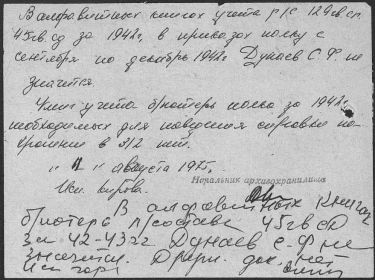 В алфавитных книгах учета р/с 129 гв сп
45 гв сд за 1942г, в приказах полку с
сентября по декабрь 1942г Дунаев С.Ф. не
значится.
Книг учета б/потерь полка за 1942г.
необходимых для наведения справки на
хранении в 3/2 нет.
"11" августа 1975.
Начальник архивохранилища
Исп.
В алфавитных книгах
б/потерь л/состава 45 гв сд
за 42-43гг Дунаев С-Ф не
значится. Други. док. нет